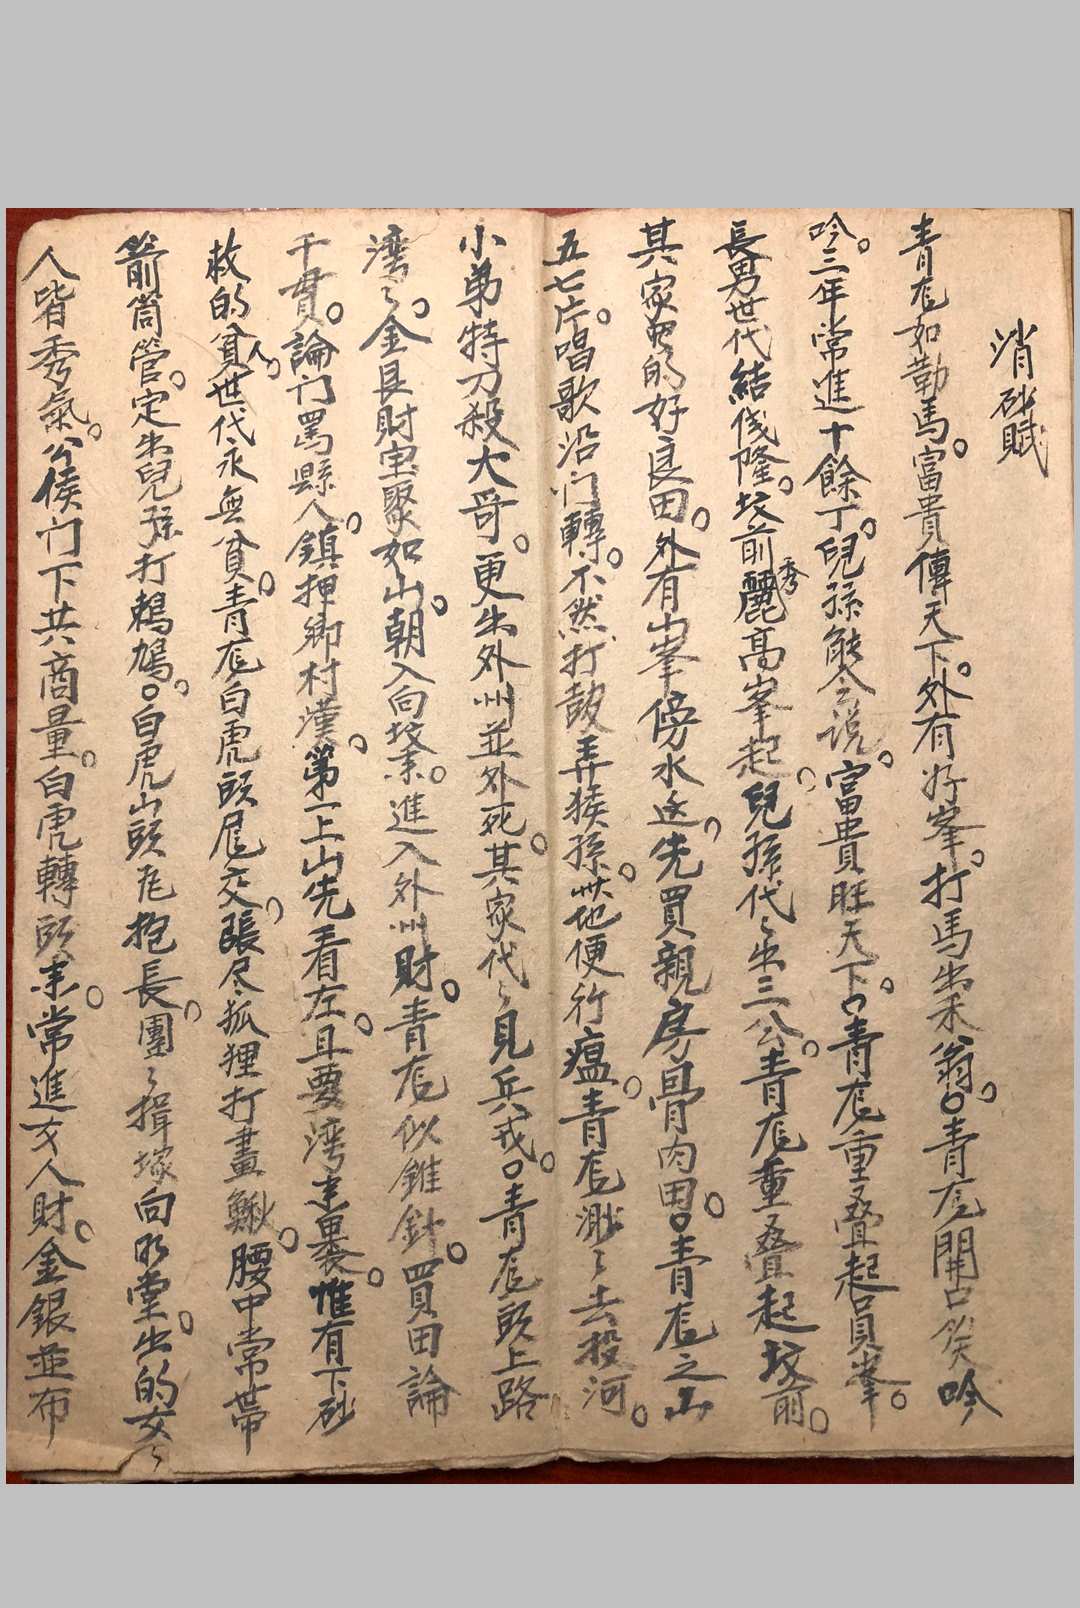 消砂賦
青龙如勒馬。富貴傳天下。外有好峯。打馬出朱翁。○青龙開口笑吟
吟。三年常進十餘丁。兒孫能会说。富貴旺天下。○青龙重叠起貝峯。
長男世代結伐隆。坟前麗秀高峯起。兒孫代〻出三公。青龙重叠起坟前。
其家出的好良田。外有山峯傍水送。先買親房骨肉田。○青龙之山
五七片。唱歌沿门轉。不然打鼓弄猴孫。世便行瘟。青龙渺〻去投河。
小弟持刀殺大哥。更出外州並外死。其家代〻見兵戎。○青龙頭上路
湾〻。金艮財宝聚如山。朝入向坟来。進入外州財。青龙似錐針。買田論
千貫。論门罵縣人。鎮押鄉村漢。第一上山先看左。且要湾来裹。惟有下砂
救的貧人。世代永無貧。青龙白虎頭尾交。張尽狐狸打畫鰍。腰中常帶
箭筒管。定出兒孫打鵝鳩。○白虎山頭尨抱長。團〻揖塚向明堂。出的女〻
人皆秀氣。公侯门下共商量。白虎轉頭来。常進女人財。金銀並布